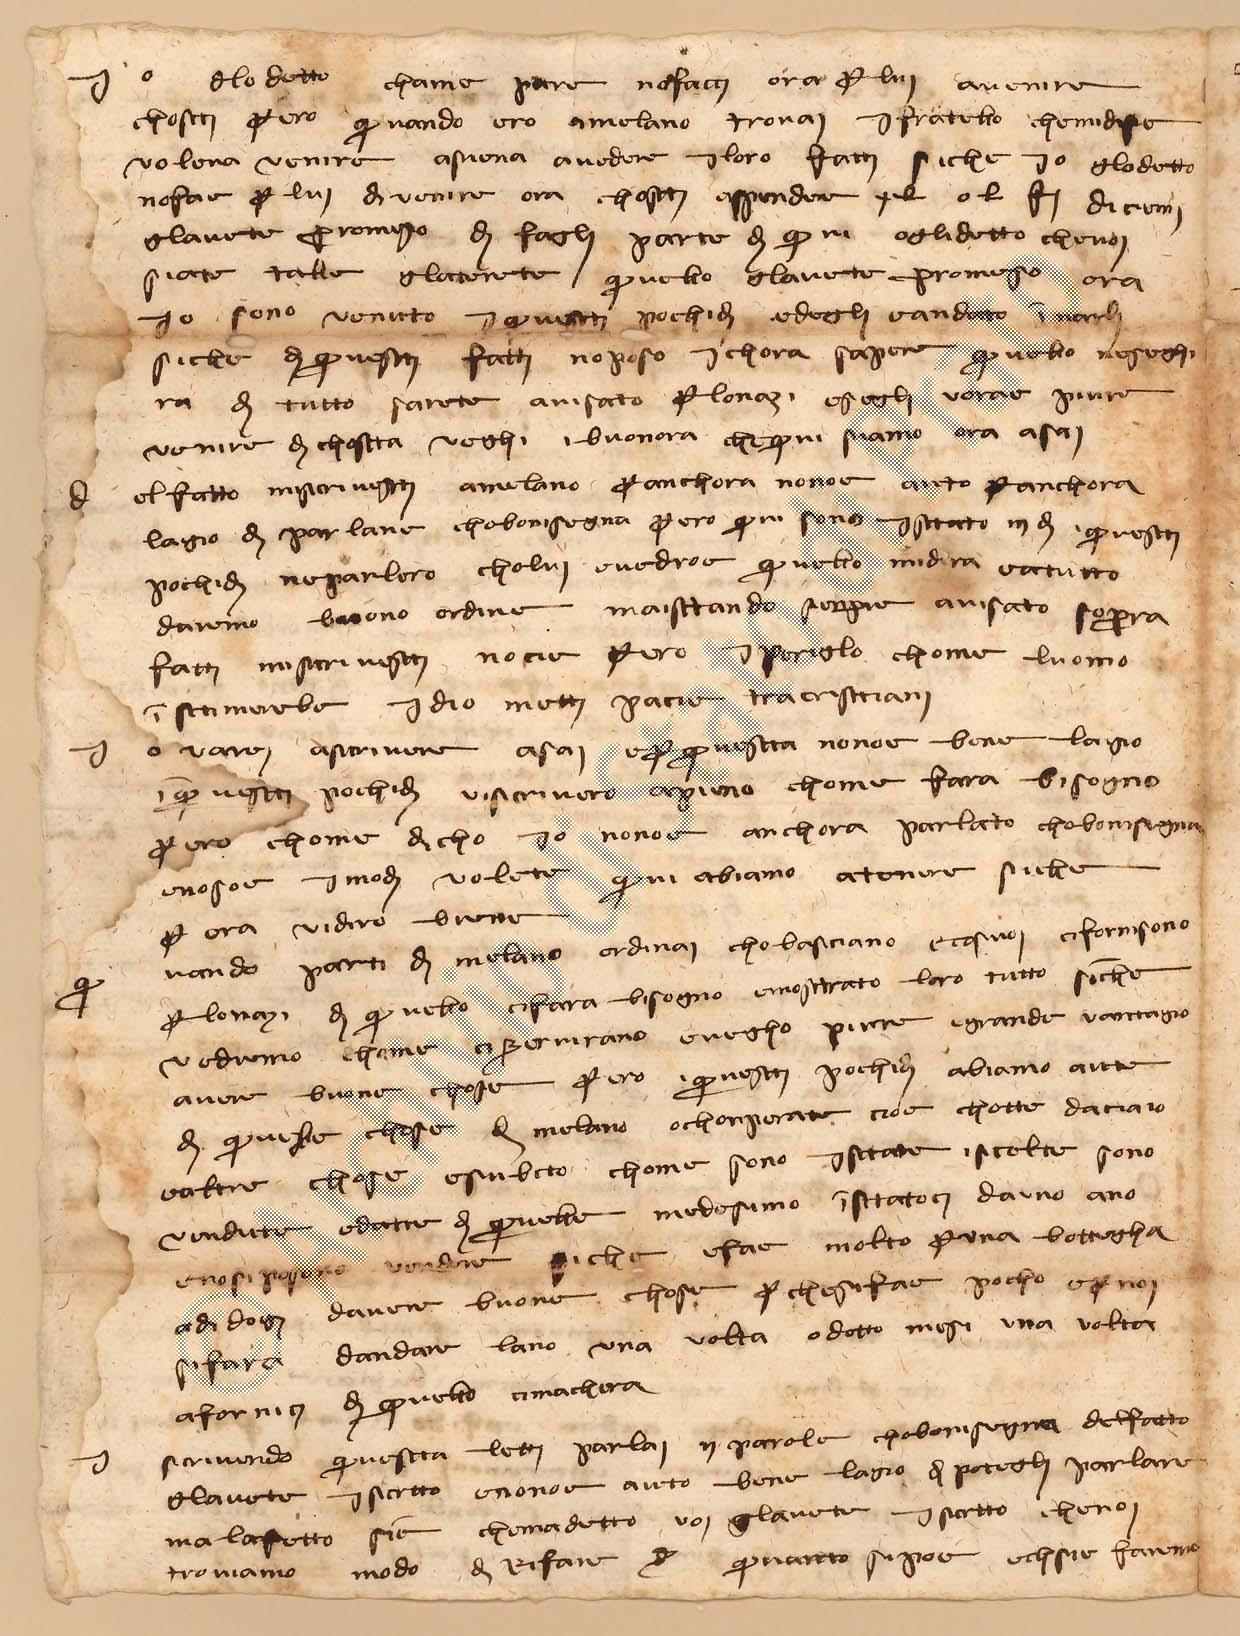 I o glo detto chame pare nofacci ora p lui avenire
chostti pero quando ero amelano trovai I fratello chemidise
voleva venire asiena avedere I loro fatti siche Io glodetto
nofae p lui di venire ora chostti espendere o l fi dicievi
glavete promeso di fagli parte di qui oglidetto chevoi
siate talle glaterete quello glavete promeso ora
Io sono venutto I questti pochidi edegli eandatto I
siche di questti fatti noposo Ichora sapere quello neseghi
ra di tutto sarete avisato plonazi esegli vorae pure
venire di chostta veghi ibuonora chequi siamo ora asai
d el fatto miscrivestti amelano panchora nonoe auto panchora
lagio di parlare chobonisegna pero qui sono Isttato iij di iquestti
pochidi neparlero cholui evedroe quello midira eatutto
daremo buono ordine maisttando senpre avisato sopra
fatti miscrivestti nocie pero I periglo chome luomo
istimerebe Idio metti pacie tracristtiani
I o varei ascrivere asai epquestta nonoe bene lagio
iquestti pochidi viscrivero apieno chome fara bisogno
pero chome dicho Io nonoe anchora parlato chobonisegna
enosoe Imodi volete qui abiamo atenere siche
p ora vidiro brene
qu uando parti di melano ordinai chobasciano ecosivoi ciforniscono
plonazi di quello cifara bisogno emosttrato loro tutto siche
vedremo chome ciservirano evegho pure egrande vanttagio
avere buone chose pero iquestti pochidi abiamo aute
di queste chose di melano ochonperate cioe chotte daciaio
ealtre chose esubito chome sono Isttate iscolte sono
vendute edatte di quelle medesimo isttatoci dauno ano
enosiposono vendere siche efae molto puna bottegha
adidogi davere buone chose pchesifae pocho epnoi
sifara dandare lano una volta odotto mesi una volta
afornici di quello cimachera
I scrivendo questta letti parlai ij parole chobonisegna delfatto
glavete Iscritto enonoe auto bene lagio di potegli parlare
malafetto sie chemadetto voi glavete Iscritto chevoi
troviamo modo di Rifare e quanto sipoe echsie faremo